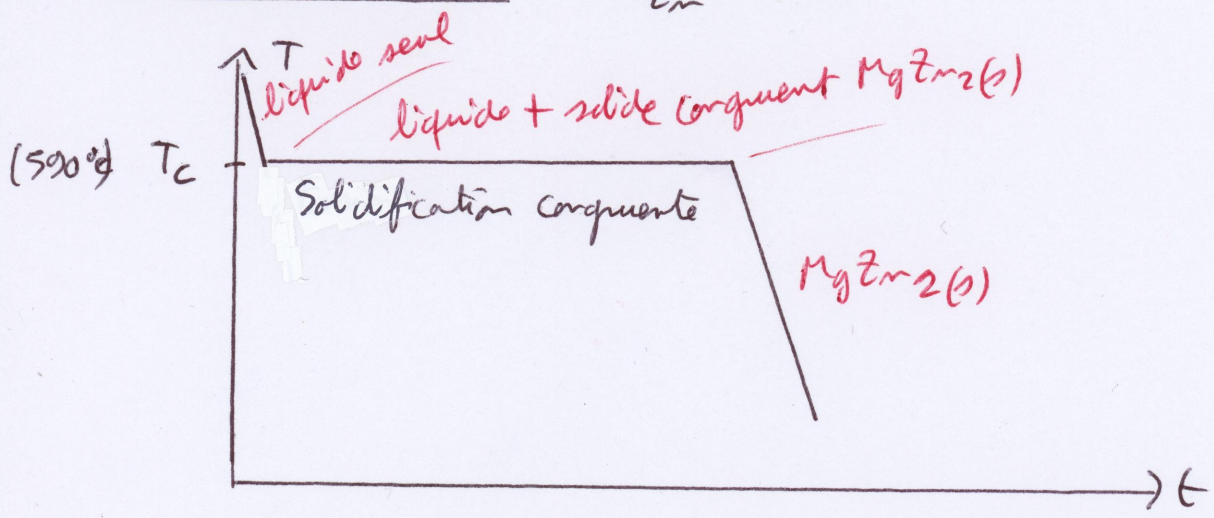 Zn
T
liquide seul
liquide + solide congruent MgZn2(s)
(590°C) Tc
Solidification congruente
MgZn2(s)
t